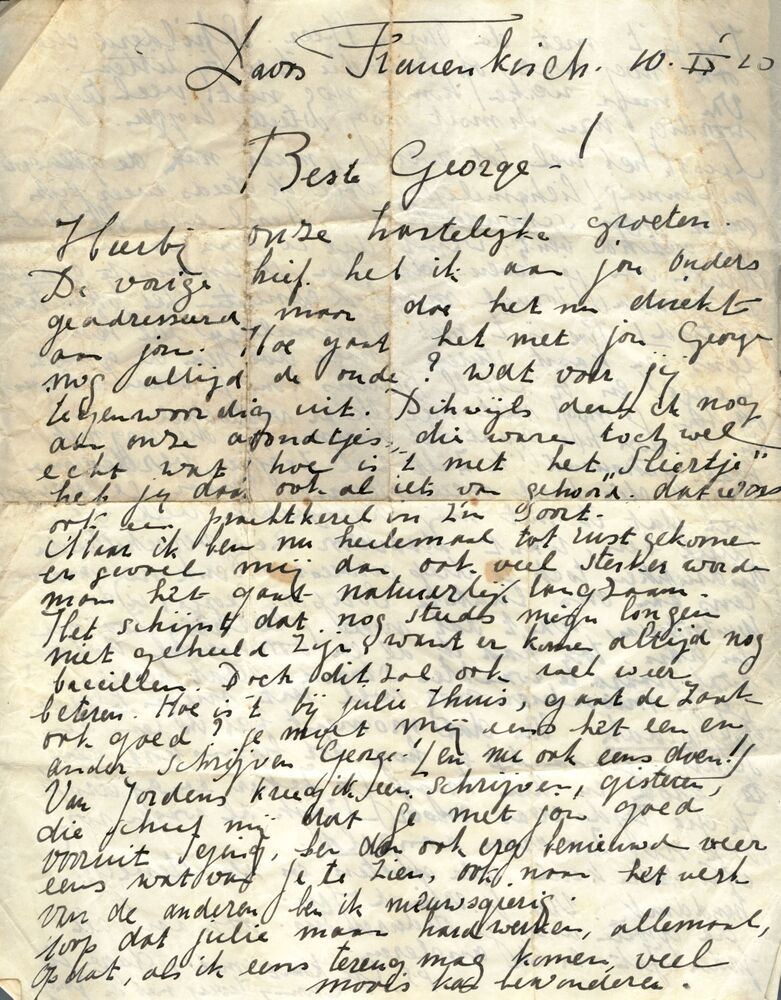 Davos Frauenkirch. 10. IX 20
Beste George - !
Hierbij onze hartelijke groeten.
De vorige brief heb ik aan jou ouders
geadresseerd maar doe het nu direkt
aan jou. Hoe gaat het met jou George
nog altijd de oude? wat voer jij
tegenwoordig uit. Dikwijls denk ik nog
aan onze avondtjes, die ware toch wel
echt wat! hoe is 't met het "Sliertje"
heb jij daar ook al iets van gehoord. dat was
ook een prachtkerel in z'n soort.
Maar ik ben nu heelemaal tot rust gekomen
en gevoel mij dan ook veel sterker worden
maar het gaat natuurlijk langzaam.
Het schijnt dat nog steeds mijn longen
niet geheeld zijn, want er komen altijd nog
bacillen. Doch dit zal ook wel weer
beteren. Hoe is 't bij julie thuis, gaat de zaak
ook goed? je moet mij eens het een en
ander schrijven George! (en nu ook eens doen!)
Van Jordens kreeg ik een schrijven, gisteren,
die schreef mij dat je met jou goed
vooruit ging, ben dan ook erg benieuwd weer
eens wat van je te zien, ook naar het werk
van de anderen ben ik nieuwsgierig.
hoop dat julie maar hard werken, allemaal,
opdat, als ik eens terug mag komen, veel
moois kan bewonderen.